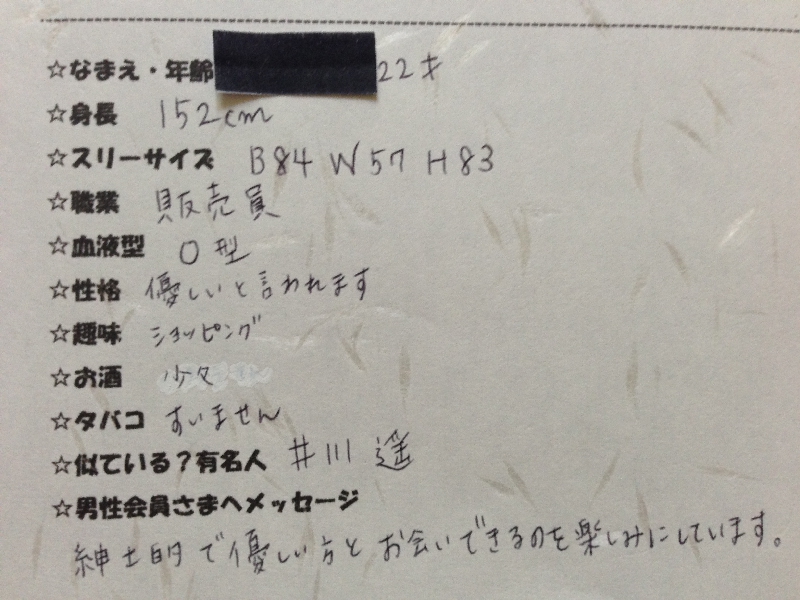 ☆なまえ・年齢 22才
☆身長 152cm
☆スリーサイズ B84 W57 H83
☆職業 販売員
☆血液型 O型
☆性格 優しいと言われます
☆趣味 ショッピング
☆お酒 少々
☆タバコ すいません
☆似ている?有名人 井川遥
☆男性会員さまへメッセージ
紳士的で優しい方とお会いできるのを楽しみにしています。